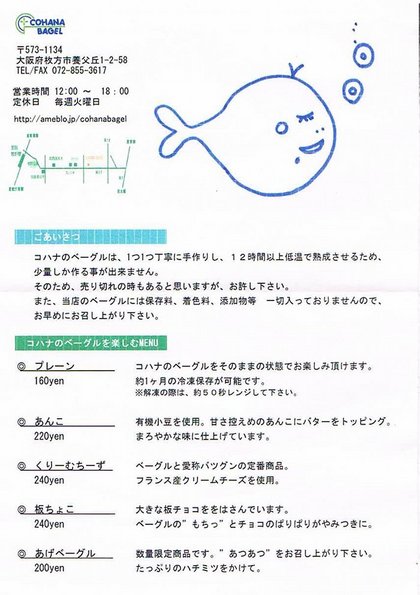 COHANA
BAGEL
〒573-1134
大阪府枚方市養父丘1-2-58
TEL/FAX 072-855-3617
営業時間 12:00 ～ 18：00
定休日 毎週火曜日
http://ameblo.jp/cohanabagel
ごあいさつ
コハナのベーグルは、1つ1つ丁寧に手作りし、１２時間以上低温で熟成させるため、
少量しか作る事が出来ません。
そのため、売り切れの時もあると思いますが、お許し下さい。
また、当店のベーグルには保存料、着色料、添加物等 一切入っておりませんので、
お早めにお召し上がり下さい。
コハナのベーグルを楽しむMENU
◎ プレーン コハナのベーグルをそのままの状態でお楽しみ頂けます。
160yen 約1ヶ月の冷凍保存が可能です。
※解凍の際は、約５０秒レンジして下さい。
◎ あんこ 有機小豆を使用。甘さ控えめのあんこにバターをトッピング。
220yen まろやかな味に仕上げています。
◎ くりーむちーず ベーグルと愛称バツグンの定番商品。
240yen フランス産クリームチーズを使用。
◎ 板ちょこ 大きな板チョコををはさんでいます。
240yen ベーグルの”もちっ”とチョコのぱりぱりがやみつきに。
◎ あげベーグル 数量限定商品です。”あつあつ”をお召し上がり下さい。
200yen たっぷりのハチミツをかけて。